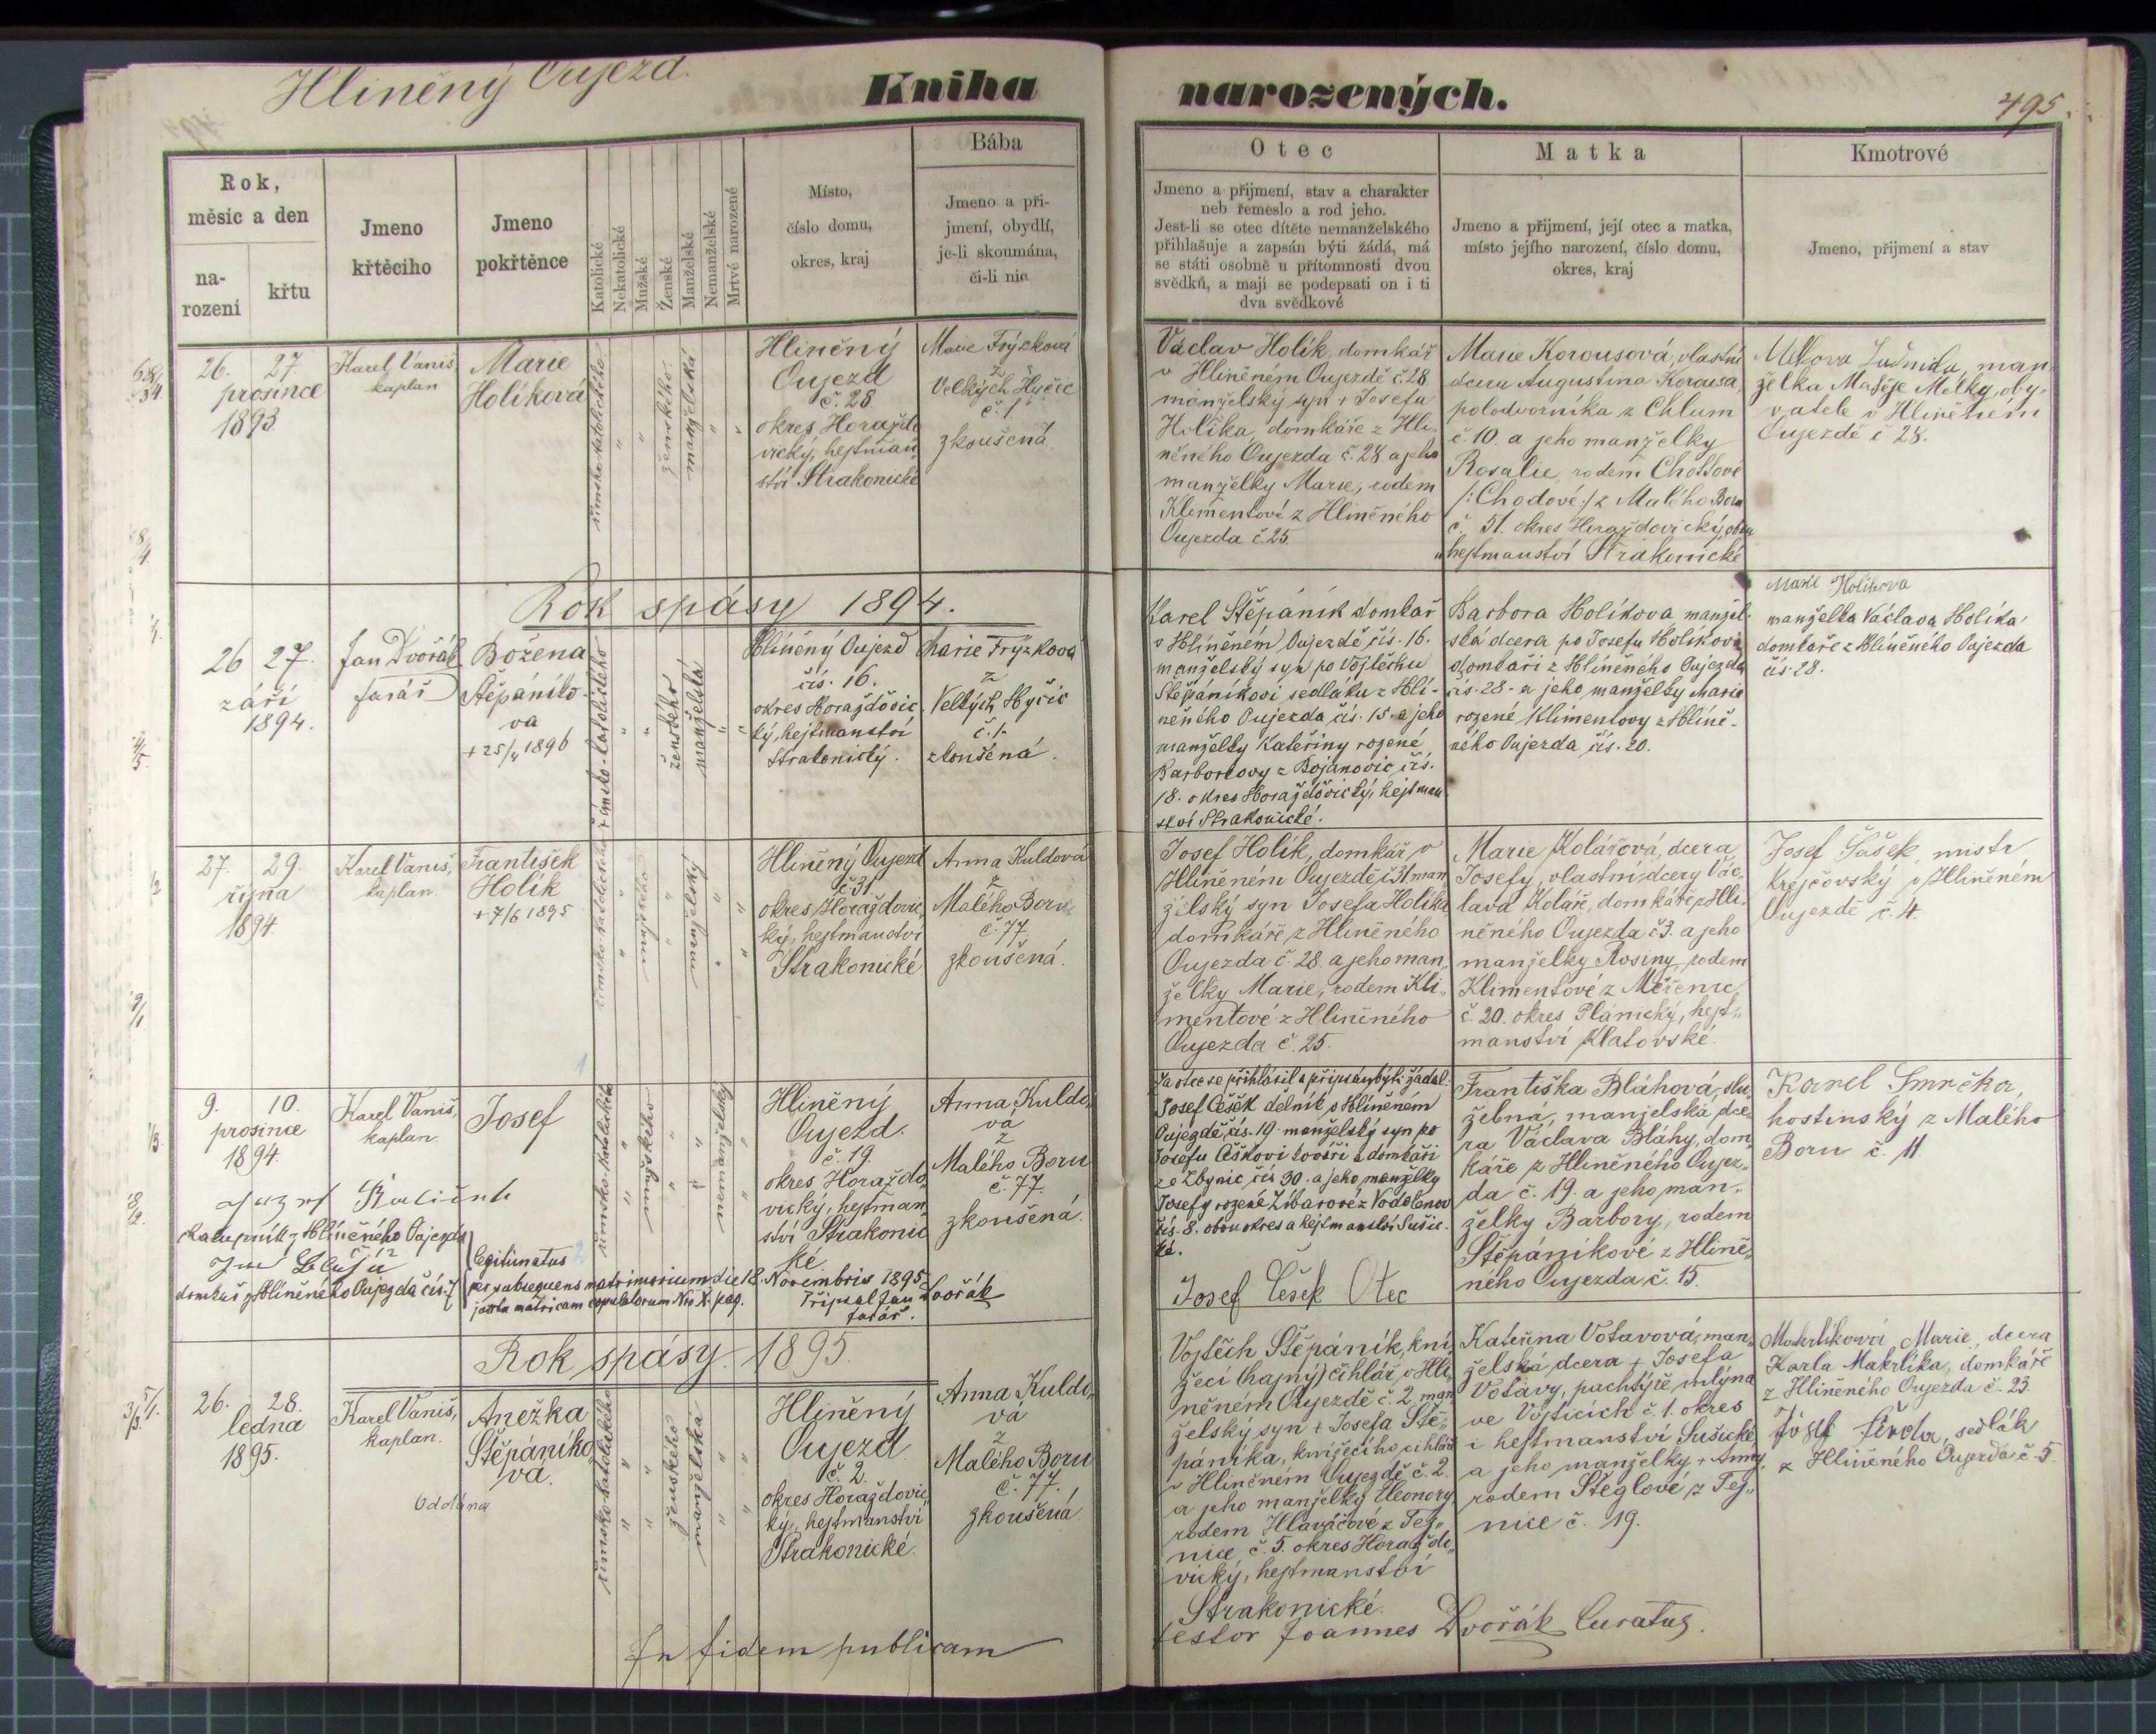 Hliněný Oujezd.
Kniha narozených.
495.
Rok,
měsíc a den
na-
rozeni
křtu
Jmeno
křtěciho
Jmeno
pokřtěnce
Katolické
Nekatolické
Mužské
Ženské
Manželské
Nemanželské
Mrtvé narozené
Místo,
číslo domu,
okres, kraj
Bába
Jmeno a při-
jmení, obydlí,
je-li skoumána,
či-li nic
Otec
Jmeno a přijmení, stav a charakter
neb řemeslo a rod jeho.
Jest-li se otec dítěte nemanželského
přihlašuje a zapsán býti žádá, má
se státi osobně u přítomnosti dvou
svědků, a mají se podepsati on i ti
dva svědkové
Matka
Jmeno a přijmení, její otec a matka,
místo jejího narození, číslo domu,
okres, kraj
Kmotrové
Jmeno, přijmení a stav
26. 27.
prosince
1893
Karel Vaniš
kaplan
Marie
Holíková
římsko-katolického
ženského
manželská
Hliněný
Oujezd
č. 28
okres Horažďo
vický, hejtman
ství Strakonické
Marie Frýzková
z
Velkých Hyčic
č. 1
zkoušená
Václav Holík, domkář
v Hliněném Oujezdě č. 28
manželský syn + Josefa
Holíka, domkáře z Hli-
něného Oujezda č. 28 a jeho
manželky Marie, rodem
Klimentové z Hliněného
Oujezda č. 25
Marie Korousová, vlastní
dcera Augustina Korousa,
polodvorníka z Chlum
č. 10. a jeho manželky
Rosalie, rodem Chottové
/: Chodové :/ z Malého Boru
č. 51. okres Horažďovický, obou
hejtmanství Strakonické
Melkova Ludmila, man
želka Matěje Melky, oby-
vatele v Hliněném
Oujezdě č 28.
Rok spásy 1894.
26 27.
září
1894.
Jan Dvořák
farář
Božena
Štěpániko-
va
+ 25/4 1896
římsko-katolického
ženského
manželská
Hliněný Oujezd
čís. 16.
okres Horažďovic
ký, hejtmanství
Strakonický.
Marie Frýzkova
z
Velkých Hyčic
č. 1.
zkoušená.
Karel Štěpáník domkař
v Hlíněném Oujezdě čís. 16.
manželský syn po Vojtěchu
Štěpáníkovi sedláku z Hlí-
něného Oujezda čís. 15. a jeho
manželky Kateřiny rozené
Barborkovy z Bojanovic čís.
18. okres Horažďovický, hejtman
ství Strakonické.
Barbora Holíkova manžel-
ská dcera po Josefu Holíkovi
domkaři z Hlíněného Oujezda
čís. 28 - a jeho manželky Marie
rozené Klimentovy z Hlíně-
ného Oujezda čís. 20.
Marie Holíkova
manželka Václava Holíka
domkaře z Hlíněného Oujezda
čís. 28.
27. 29.
října
1894
Karel Vaniš,
kaplan.
František
Holík
+ 7/6 1895
římsko-katolického
mužského
manželský
Hliněný Oujezd
č. 31.
okres Horažďovic
ký, hejtmanství
Strakonické
Anna Kuldová
z
Malého Boru
č. 77.
zkoušená.
Josef Holík, domkář v
Hliněném Oujezdě č. 31. man
želský syn Josefa Holíka
domkáře z Hliněného
Oujezda č. 28. a jeho man„
želky Marie, rodem Kli„
mentové z Hliněného
Oujezda č. 25.
Marie Kolářová, dcera
Josefy, vlastní dcery Vác
lava Koláře, domkáře z Hli-
něného Oujezda č 3. a jeho
manželky Rosiny, rodem
Klimentové z Měčenic
č. 20. okres Plánický, hejt„
manství Klatovské.
Josef Šašek, mistr
krejčovský v Hliněném
Oujezdě č. 4.
9. 10.
prosince
1894.
Karel Vaniš,
kaplan
Josef
římsko-katolické
mužského
nemanželský
Hliněný
Oujezd.
č. 19.
okres Horažďo„
vický, hejtman„
ství Strakonic
ké.
Anna Kuldo„
vá
z
Malého Boru
č. 77.
zkoušená.
kalupník z Hlíněného Oujezda
domkař z Hlíněného Oujezda čís. 7
Legitimatus
per subsequens matrimonium die 18. Novembris 1895
juxta matricam copulatorum Nro X. pag.
Připsal Jan Dvořák
farář.
Ja otec se přihlásil a připsán býti žádal.
Josef Češek dělník v Hlíněném
Oujezdě čís. 19. manželský syn po
Josefu Češkovi kováři a domkáři
ze Zbynic čís 30. a jeho manželky
Josefy rozené Zíbarové z Vodolenov
čís. 8. obou okres a hejtmanství Sušic.
ké.
Josef Češek Otec
Františka Bláhová, slu
žebná, manželská dce„
ra Václava Bláhy, dom
káře z Hliněného Oujez„
da č. 19. a jeho man„
želky Barbory, rodem
Štěpáníkové z Hlině„
ného Oujezda č. 15.
Karel Smrčka,
hostinský z Malého
Boru č. 11.
Rok spásy. 1895.
26. 28.
ledna
1895.
Karel Vaniš,
kaplan.
Anežka
Štěpáníko„
vá.
Oddána
římsko-katolického
ženského
manželska
Hliněný
Oujezd
č. 2.
okres Horažďovic„
ký, hejtmanství
Strakonické.
Anna Kuldo„
vá
z
Malého Boru
č. 77.
zkoušená
Vojtěch Štěpáník, kní„
žecí (hajný) cihlář v Hli„
něném Oujezdě č. 2. man
želský syn + Josefa Ště„
páníka, knížecího cihláře
v Hliněném Oujezdě č. 2.
a jeho manželky Eleonory
rodem Hlaváčové z Tej„
nice č. 5. okres Horažďo„
vický, hejtmanství
Strakonické.
Kateřina Votavová, man„
želská dcera + Josefa
Votavy, pachtýře mlýna
ve Vojticích č. 1. okres
i hejtmanství Sušické
a jeho manželky + Anny,
rodem Šteglové z Tej„
nice č. 19.
Makrlíková Marie, dcera
Karla Makrlíka, domkáře
z Hliněného Oujezda č. 23.
sedlák
z Hliněného Oujezda č. 5.
In fidem publicam testor Joannes Dvořák Curatus.